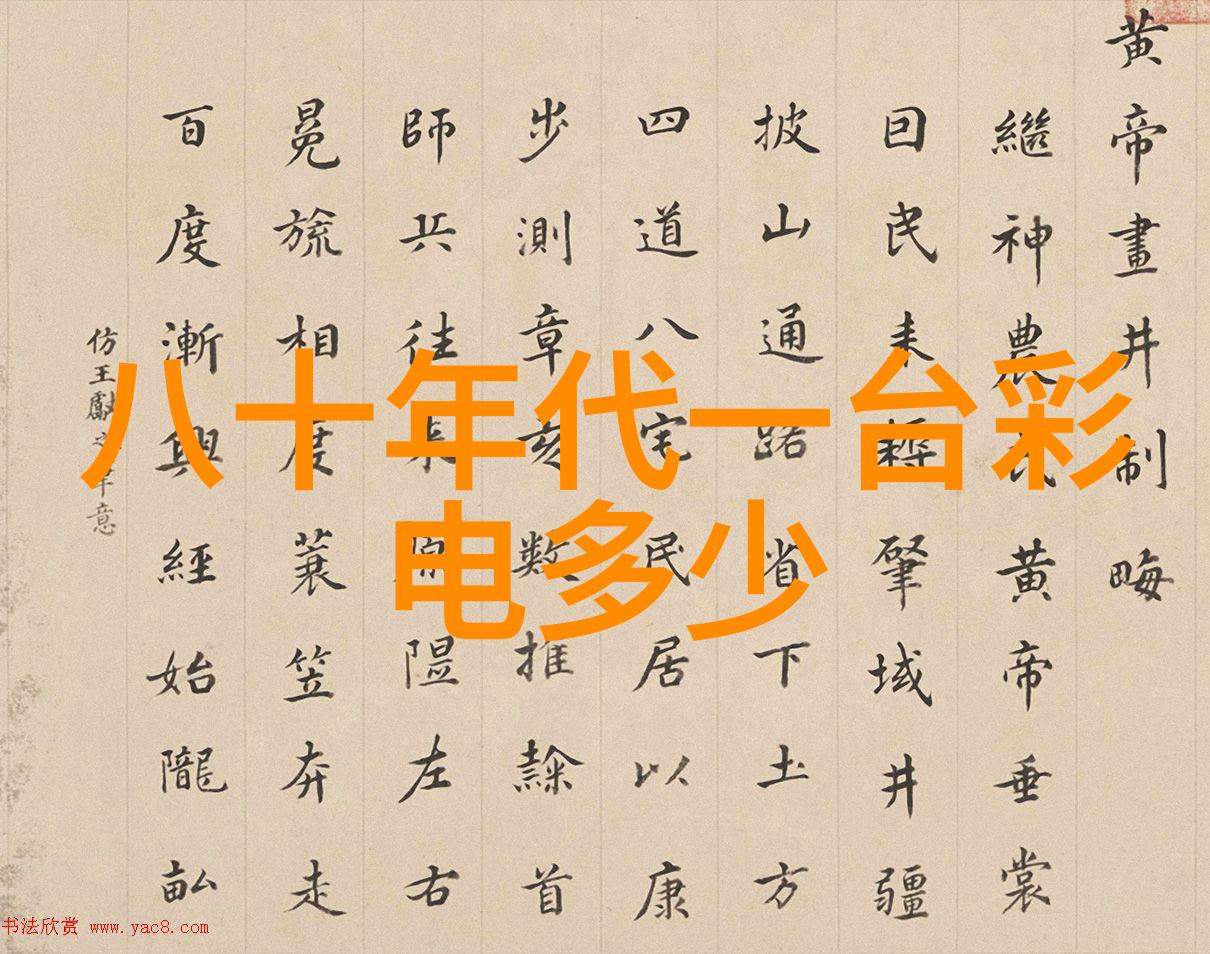 八十年代一台彩
电多少
黄帝畫井制畮
繼神農氏黄帝垂裳
囙民耒耨肇域井疆
披山通路省下土方
四道八宅民居以康
步測章亥數推隸首
師兵往來原隰左右
冕旒相度蓑笠奔走
百度漸興經始隴畝
仿王獻之筆意
书法欣赏 www.yac8.com